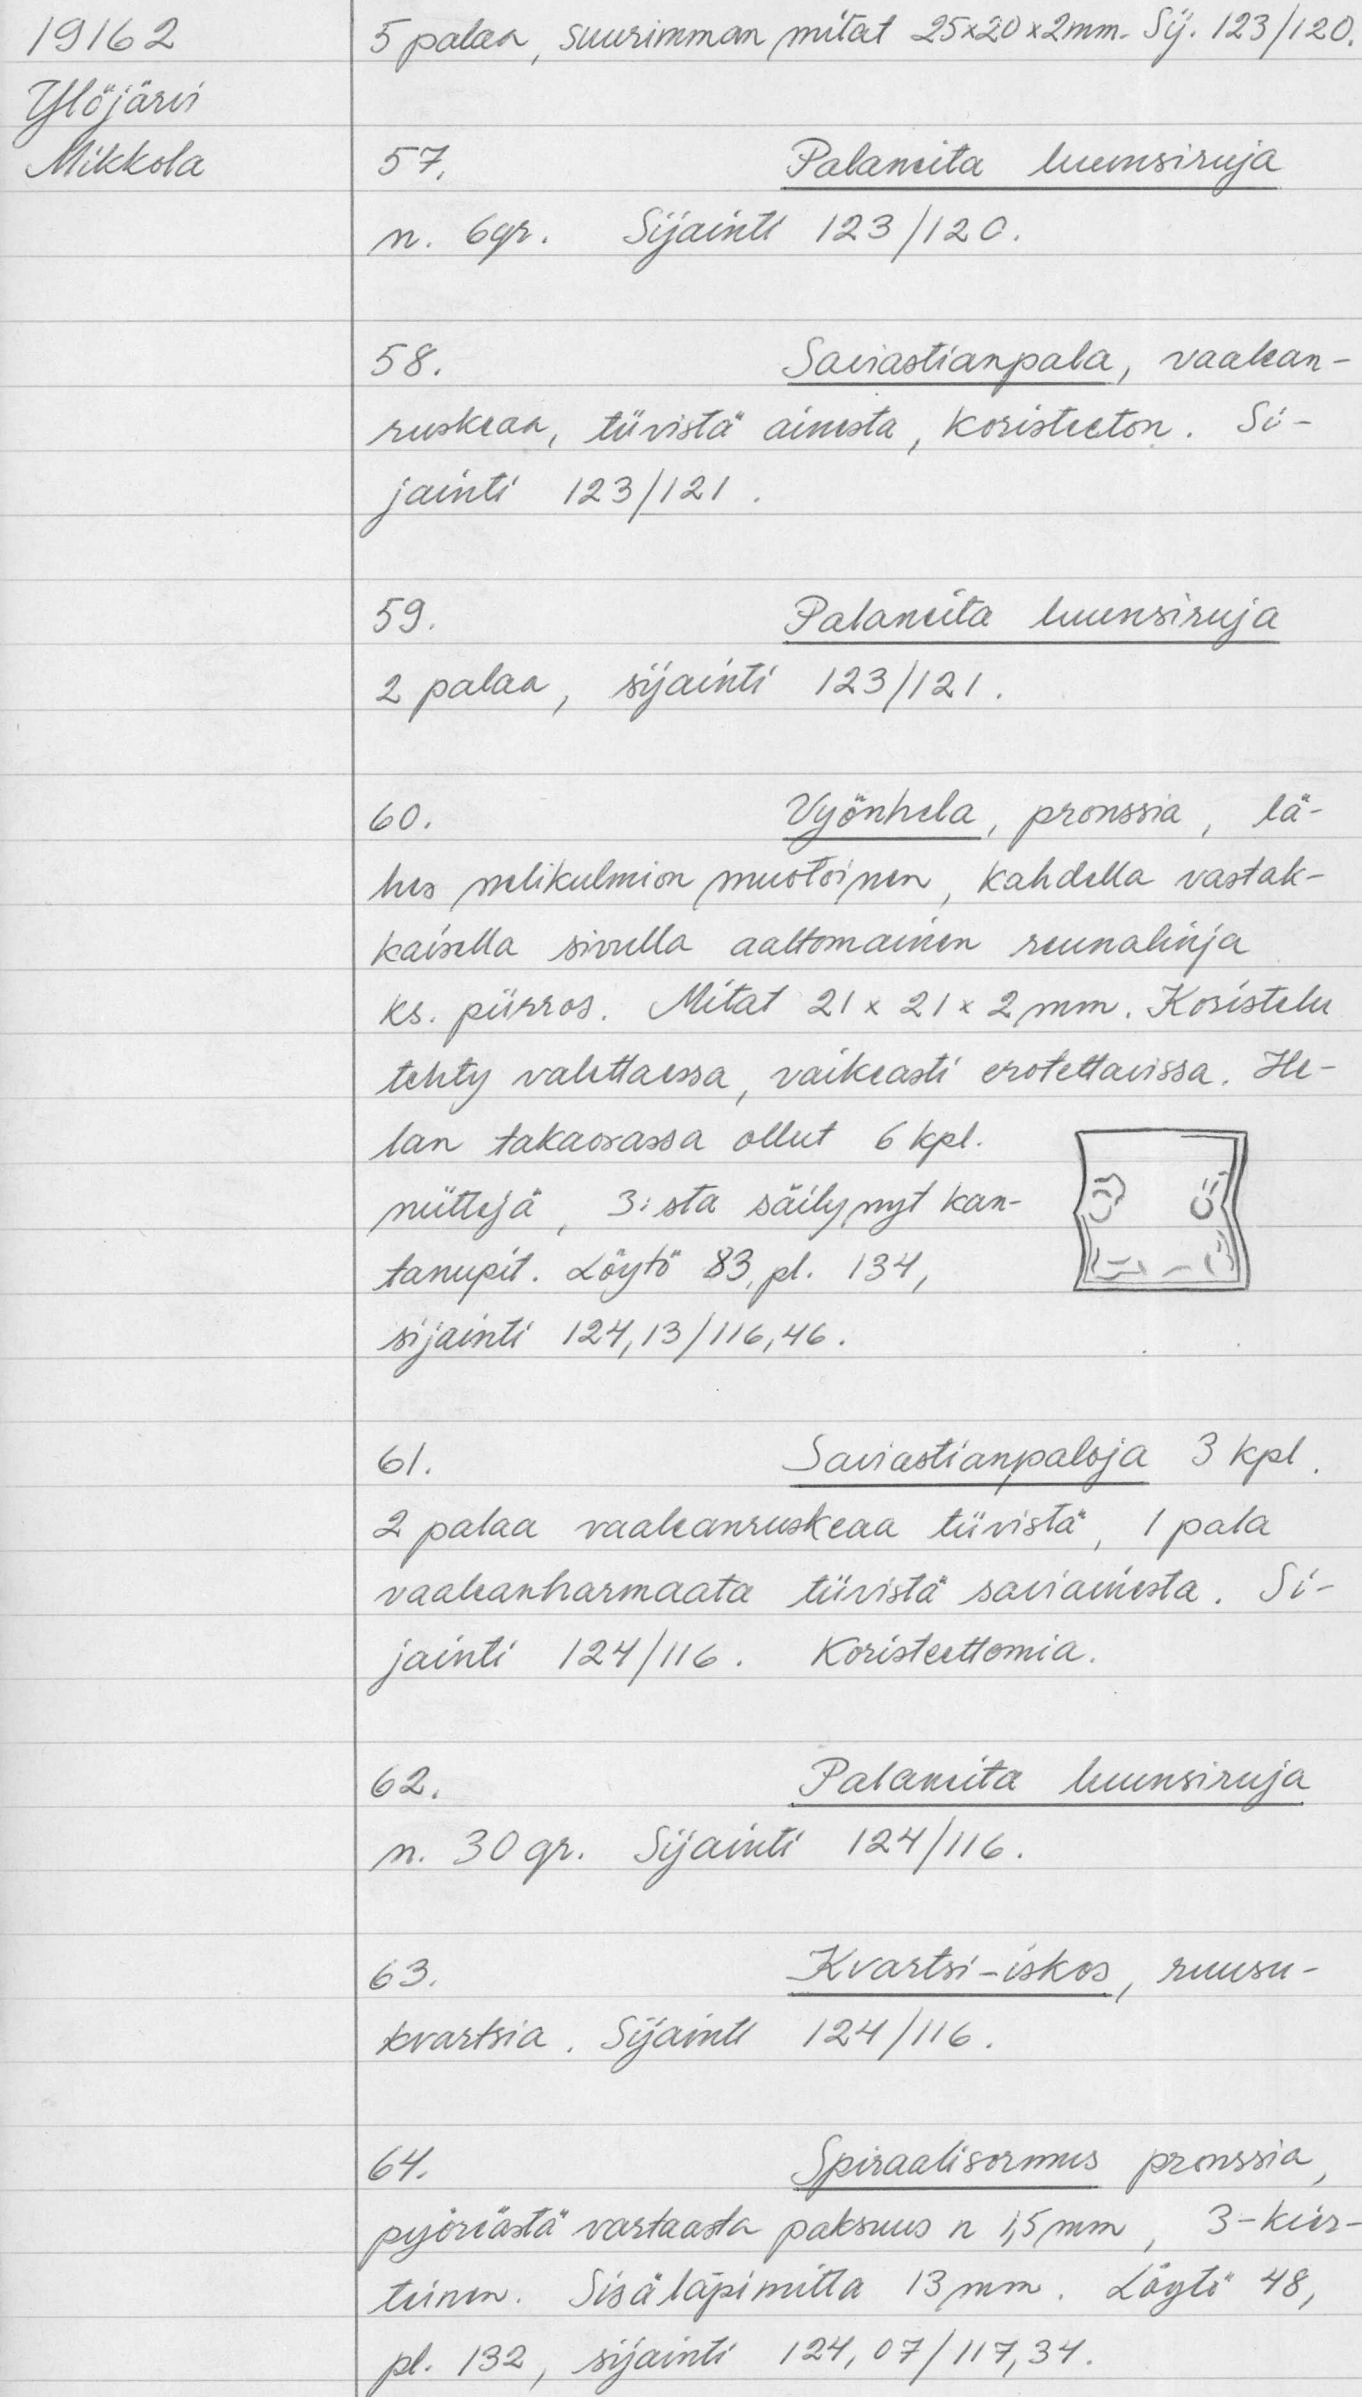 19162
Ylöjärvi
Mikkola
5 palaa, suurimman mitat 25x20x2mm. Sij. 123/120.
57. Palaneita luunsiruja
n. 6gr. Sijainti 123/120.
58. Saviastianpala, vaalean-
ruskeaa, tiivistä ainesta, koristeeton. Si-
jainti 123/121.
59. Palaneita luunsiruja
2 palaa, sijainti 123/121.
60. Vyönhela, pronssia, lä-
hes nelikulmion muotoinen, kahdella vastak-
kaisella sivulla aaltomainen reunalinja
ks. piirros. Mitat 21 x 21 x 2 mm. Koristelu
tehty valettaessa, vaikeasti erotettavissa. He-
lan takaosassa ollut 6 kpl.
niittejä, 3:sta säilynyt kan-
tanupit. Löytö 83, pl. 134,
sijainti 124,13/116,46.
61. Saviastianpaloja 3 kpl.
2 palaa vaaleanruskeaa tiivistä, 1 pala
vaaleanharmaata tiivistä saviainesta. Si-
jainti 124/116. Koristeettomia.
62. Palaneita luunsiruja
n. 30 gr. Sijainti 124/116.
63. Kvartsi-iskos, ruusu-
kvartsia. Sijainti 124/116.
64. Spiraalisormus pronssia,
pyöreästä vartaasta paksuus n 1,5 mm, 3-kier-
teinen. Sisäläpimitta 13 mm. Löytö 48,
pl. 132, sijainti 124,07/117,34.